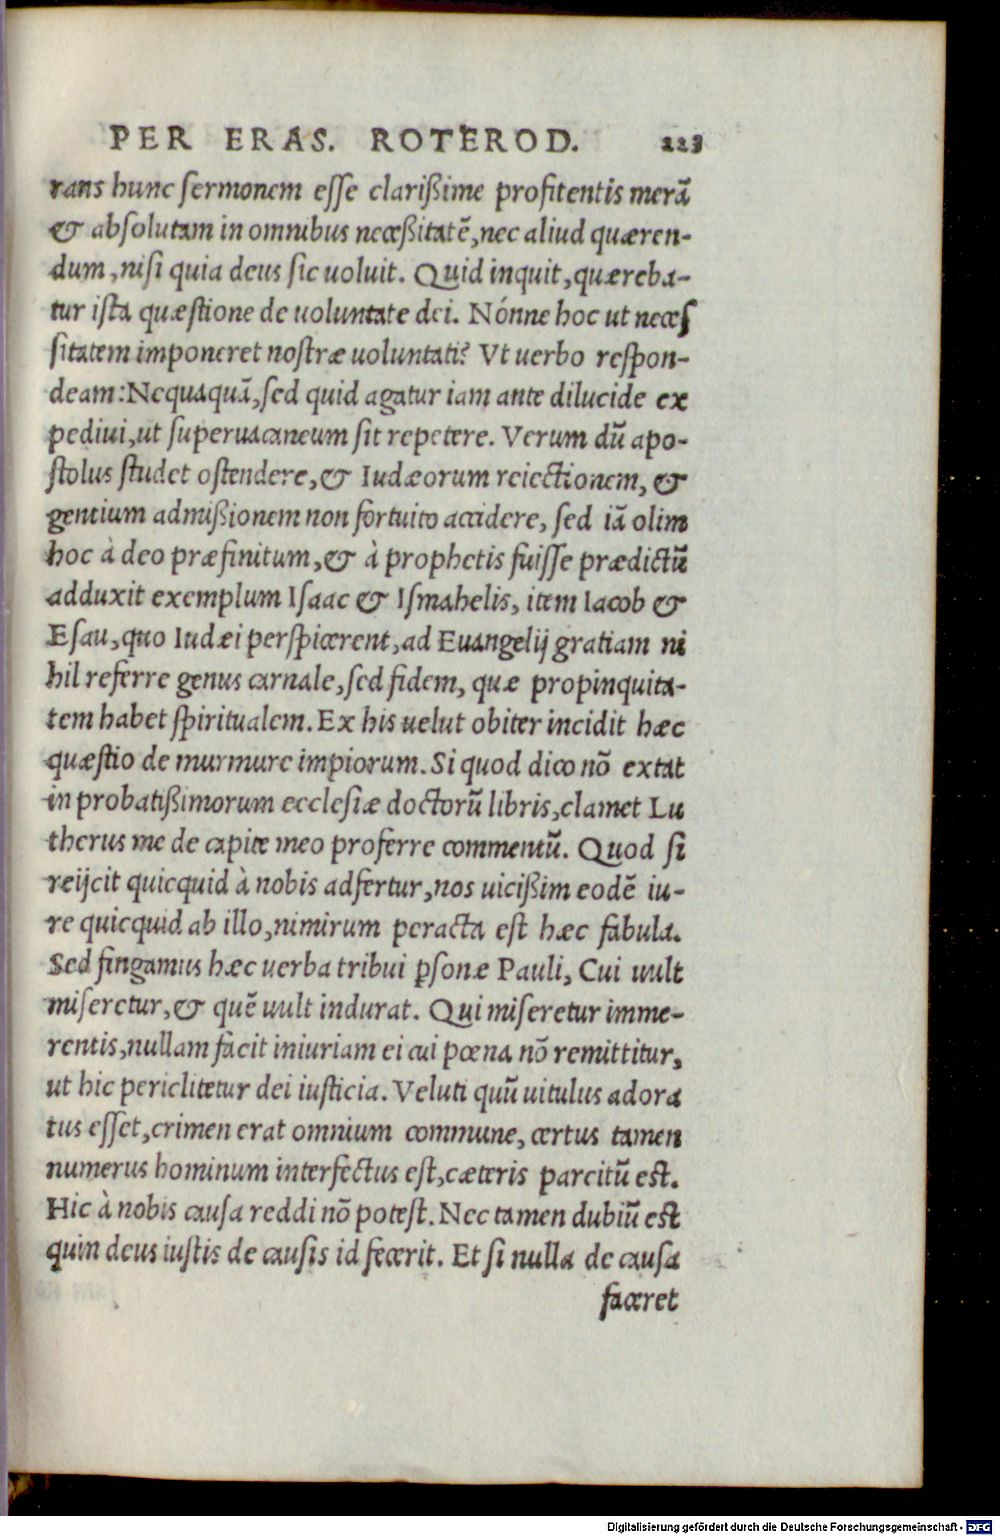 PER ERAS. ROTEROD. 223
rans hunc sermonem esse clarißime profitentis merā
& absolutam in omnibus neceßitatē, nec aliud quæren-
dum, nisi quia deus sic uoluit. Quid inquit, quæreba-
tur ista quæstione de uoluntate dei. Nónne hoc ut neces
sitatem imponeret nostræ uoluntati? Vt uerbo respon-
deam: Nequaquā, sed quid agatur iam ante dilucide ex
pediui, ut superuacaneum sit repetere. Verum dū apo-
stolus studet ostendere, & Iudæorum reiectionem, &
gentium admißionem non fortuito accidere, sed iā olim
hoc à deo præfinitum, & à prophetis fuisse prædictū
adduxit exemplum Isaac & Ismahelis, item Iacob &
Esau, quo Iudæi perspicerent, ad Euangelij gratiam ni
hil referre genus carnale, sed fidem, quæ propinquita-
tem habet spiritualem. Ex his uelut obiter incidit hæc
quæstio de murmure impiorum. Si quod dico nō extat
in probatißimorum ecclesiæ doctorū libris, clamet Lu
therus me de capite meo proferre commentū. Quod si
reijcit quicquid à nobis adfertur, nos uicißim eodē iu-
re quicquid ab illo, nimirum peracta est hæc fabula.
Sed fingamus hæc uerba tribui ꝑsonæ Pauli, Cui uult
miseretur, & quē uult indurat. Qui miseretur imme-
rentis, nullam facit iniuriam ei cui pœna nō remittitur,
ut hic periclitetur dei iusticia. Veluti quū uitulus adora
tus esset, crimen erat omnium commune, certus tamen
numerus hominum interfectus est, cæteris parcitū est.
Hic à nobis causa reddi nō potest. Nec tamen dubiū est
quin deus iustis de causis id fecerit. Et si nulla de causa
faceret
Digitalisierung gefördert durch die Deutsche Forschungsgemeinschaft - DFG